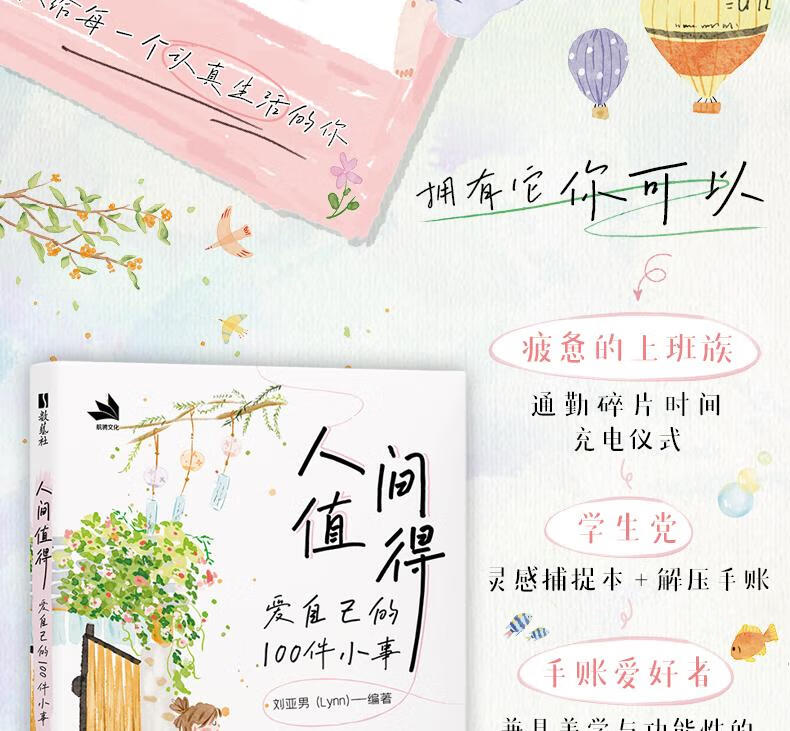 给每一个认真生活的你
拥有它你可以
疲惫的上班族
通勤碎片时间
充电仪式
学生党
灵感捕捉本+解压手账
手账爱好者
航骋文化
人间
值得
爱自己的
100件小事
刘亚男 (Lynn)—编著
人间值得
爱自己的100件小事